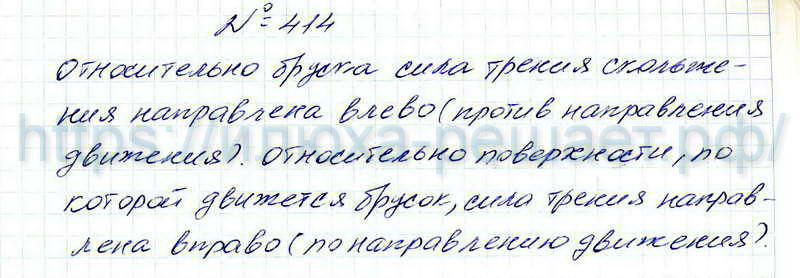 № 414
Относительно бруска сила трения скольже-
ния направлена влево (против направления
https://илюха.решает.рф/
движения). Относительно поверхности, по
которой движется брусок, сила трения направ-
лена вправо (по направлению движения).